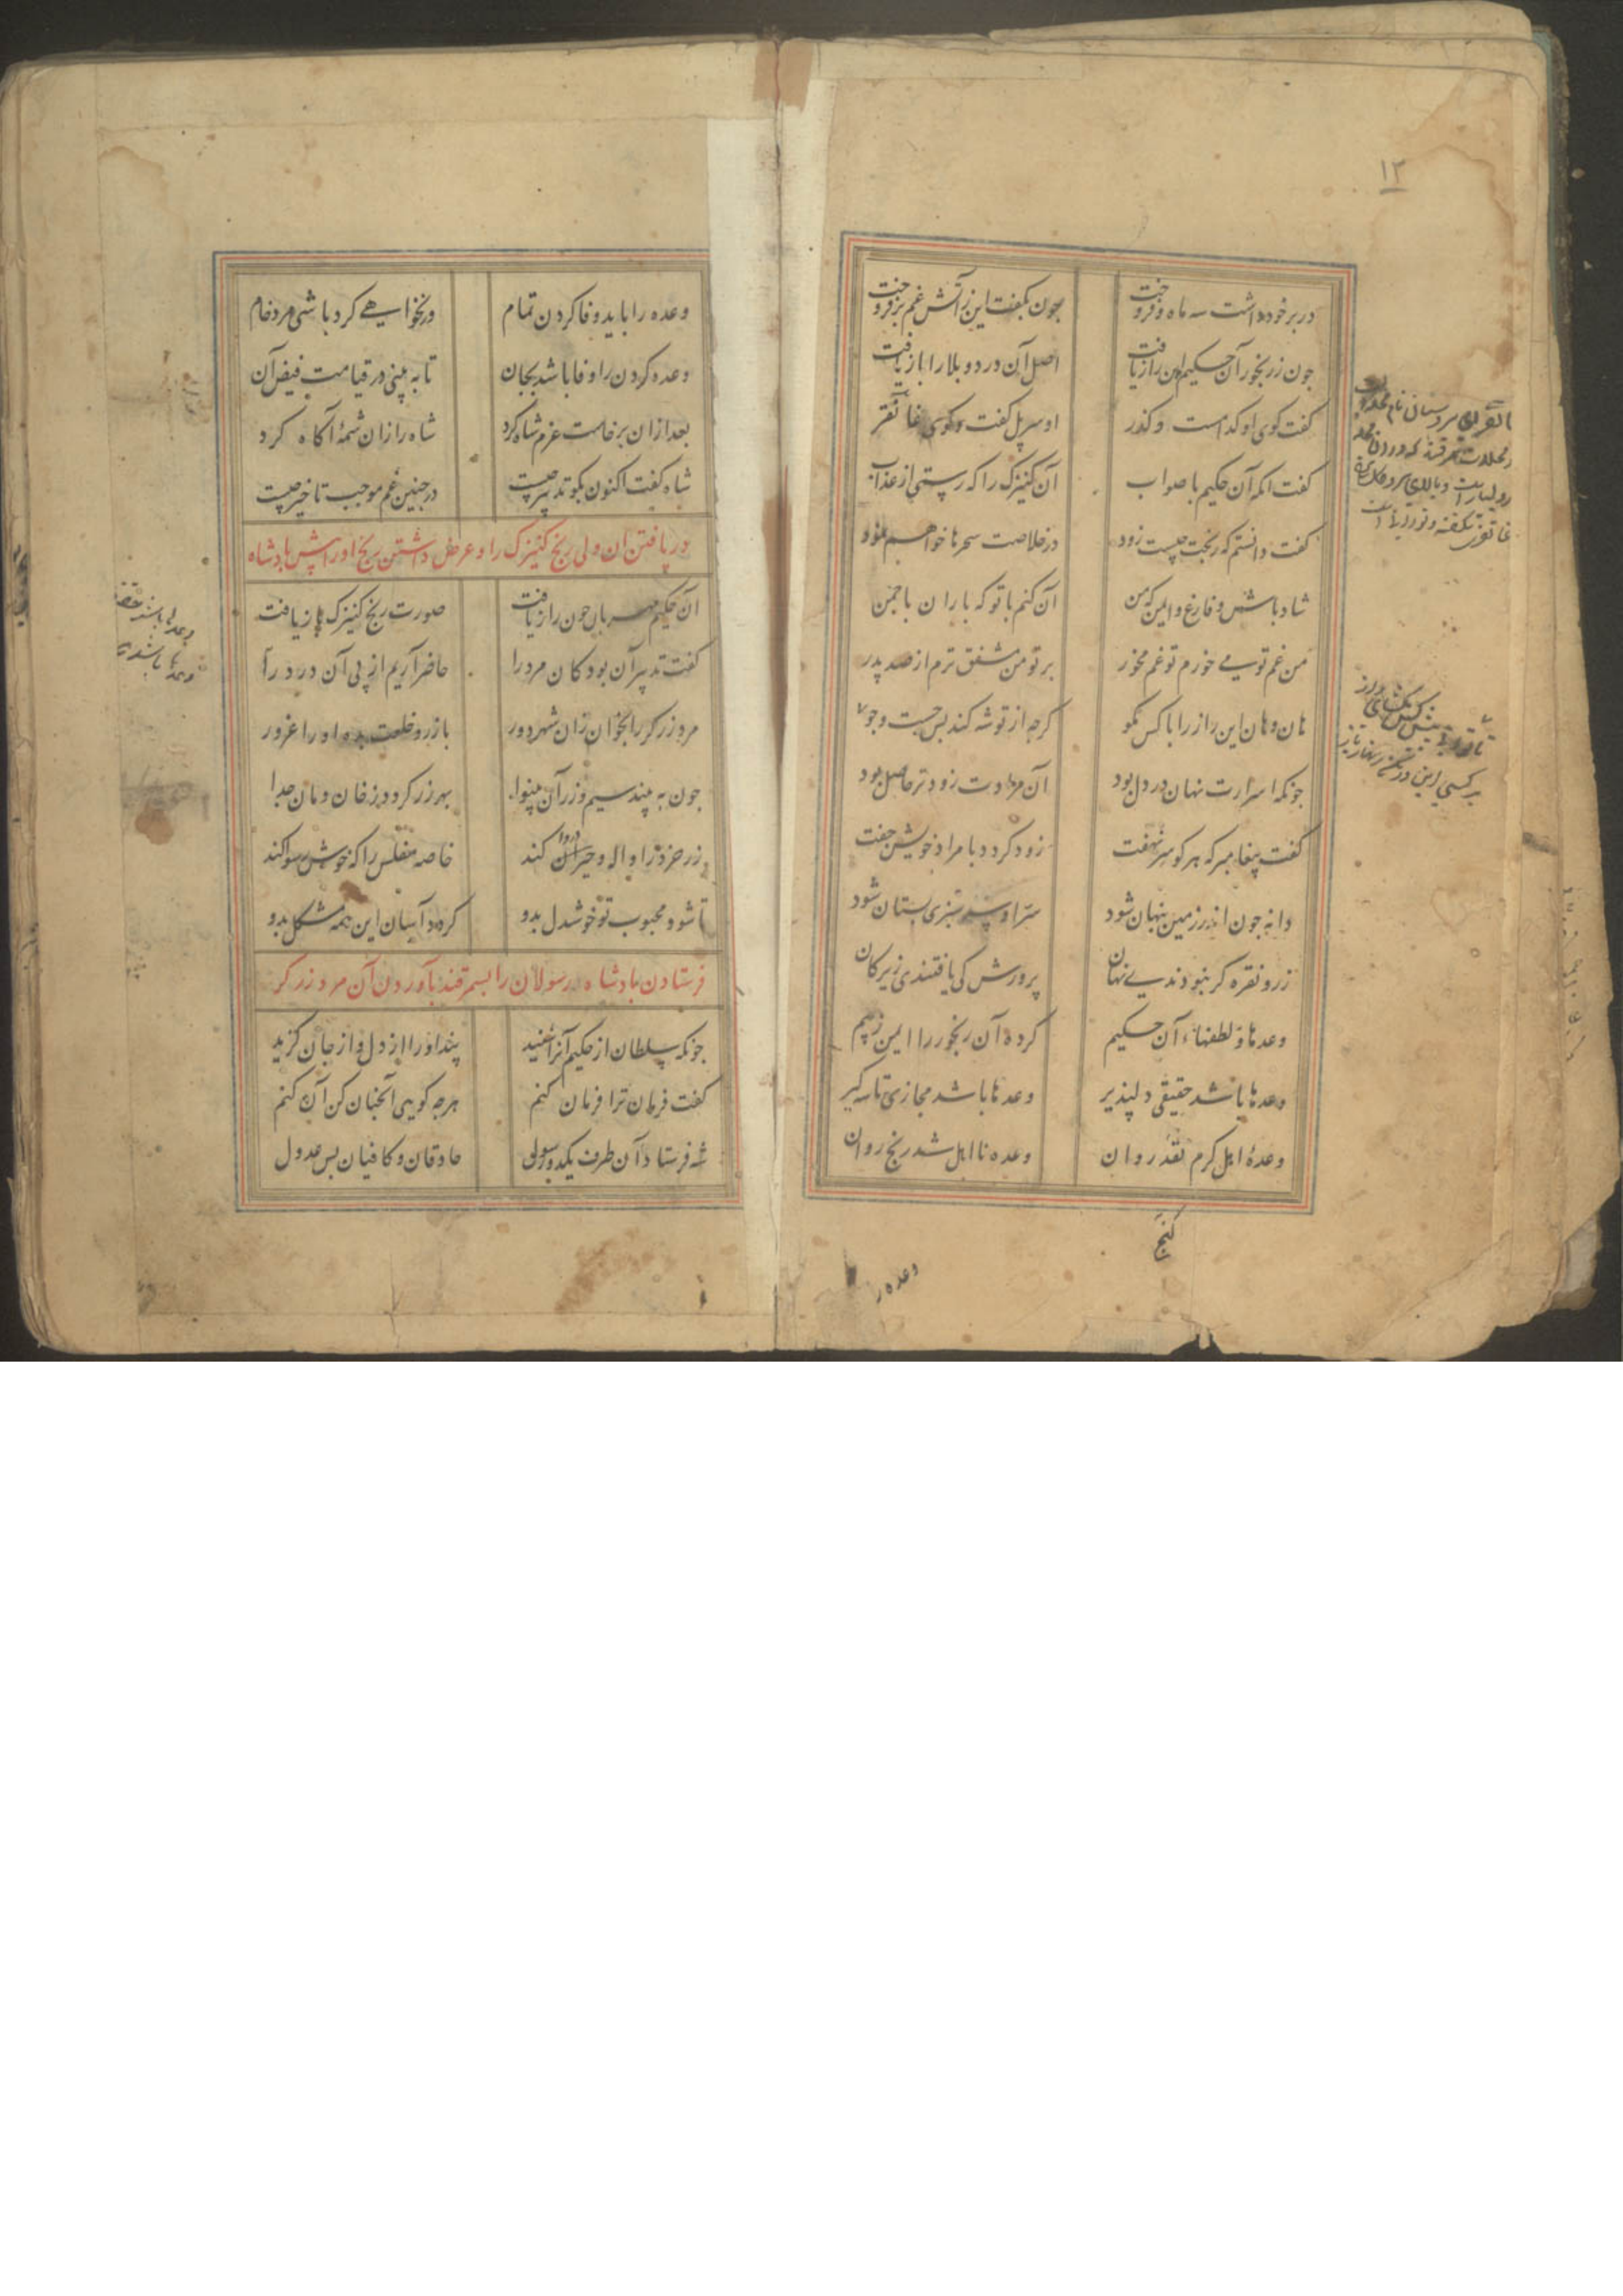 ۱۲
در بر خود داشت سه ماه و فروخت جون بكفت این ز آتش غم برفروخت
جون ز رنجور آن حکیم این راز یافت اصل آن درد و بلا را باز یافت
کفت کوی او کدامست و کذر او سر پل کفت و کوی غاتفر
کفت انکه آن حکیم با صواب آن کنیزک را که رستی از عذاب
کفت دانستم که رنجت چیست زود در خلاصت سحرها خواهم نمود
شاد باش و فارغ و ایمن که من آن کنم با تو که باران با چمن
من غم تو مے خورم تو غم مخور بر تو من مشفق ترم از صد پدر
هان و هان این راز را با کس مکو کرجه از تو شه کند بس جست و جو
جونکه اسرارت نهان در دل بود آن مرادت زودتر حاصل بود
کفت پیغامبر که هر کو سر نهفت زود کردد با مراد خویش جفت
دانه جون اندر زمین پنهان شود سر او سر سبزی بستان شود
زر و نقره کر نبودندے نهان پرورش کی یافتندی زیر کان
وعدها و لطفهاء آن حکیم کرد آن رنجور را ایمن ز بیم
وعدها باشد حقیقی دلپذیر وعدها باشد مجازی تاسه کیر
وعدهٔ اهل کرم نقد روان وعده نا اهل شد رنج روان
کنج
وعده را
وعده را باید وفا کردن تمام ور نخواهے کرد باشی مرد خام
وعده کردن را وفا باشد بجان تا به بینی در قیامت فیض آن
بعد ازان برخاست عزم شاه کرد شاه را زان شمهٔ آکاه کرد
شاه کفت اکنون بکو تدبیر چیست در جنین غم موجب تاخیر چیست
دریافتن آن ولی رنج کنیزک را و عرض داشتن رنج او را پیش پادشاه
آن حکیم مهربان جون راز یافت صورت رنج کنیزک باز یافت
کفت تدبیر آن بود کان مرد را حاضر آریم از پی آن درد را
مرد زرکر را بخوان زان شهر دور با زر و خلعت بده او را غرور
جون به بیند سیم و زر آن بینوا بهر زر کردد ز خان و مان جدا
زر خرد را واله و حیران کند خاصه مفلس را که خوش رسوا کند
تا شود محبوب تو خوشدل بدو کردد آسان این همه مشکل بدو
فرستادن پادشاه رسولان را بسمرقند بآوردن آن مرد زرکر
جونکه سلطان از حکیم آنرا شنید پند او را از دل و از جان کزید
کفت فرمان ترا فرمان کنم هرجه کویی آنجنان کن آن کنم
شه فرستاد آن طرف یکدو رسول حاذقان و کافیان بس عدول
وعدها باشد حقیقی
وعدها باشد